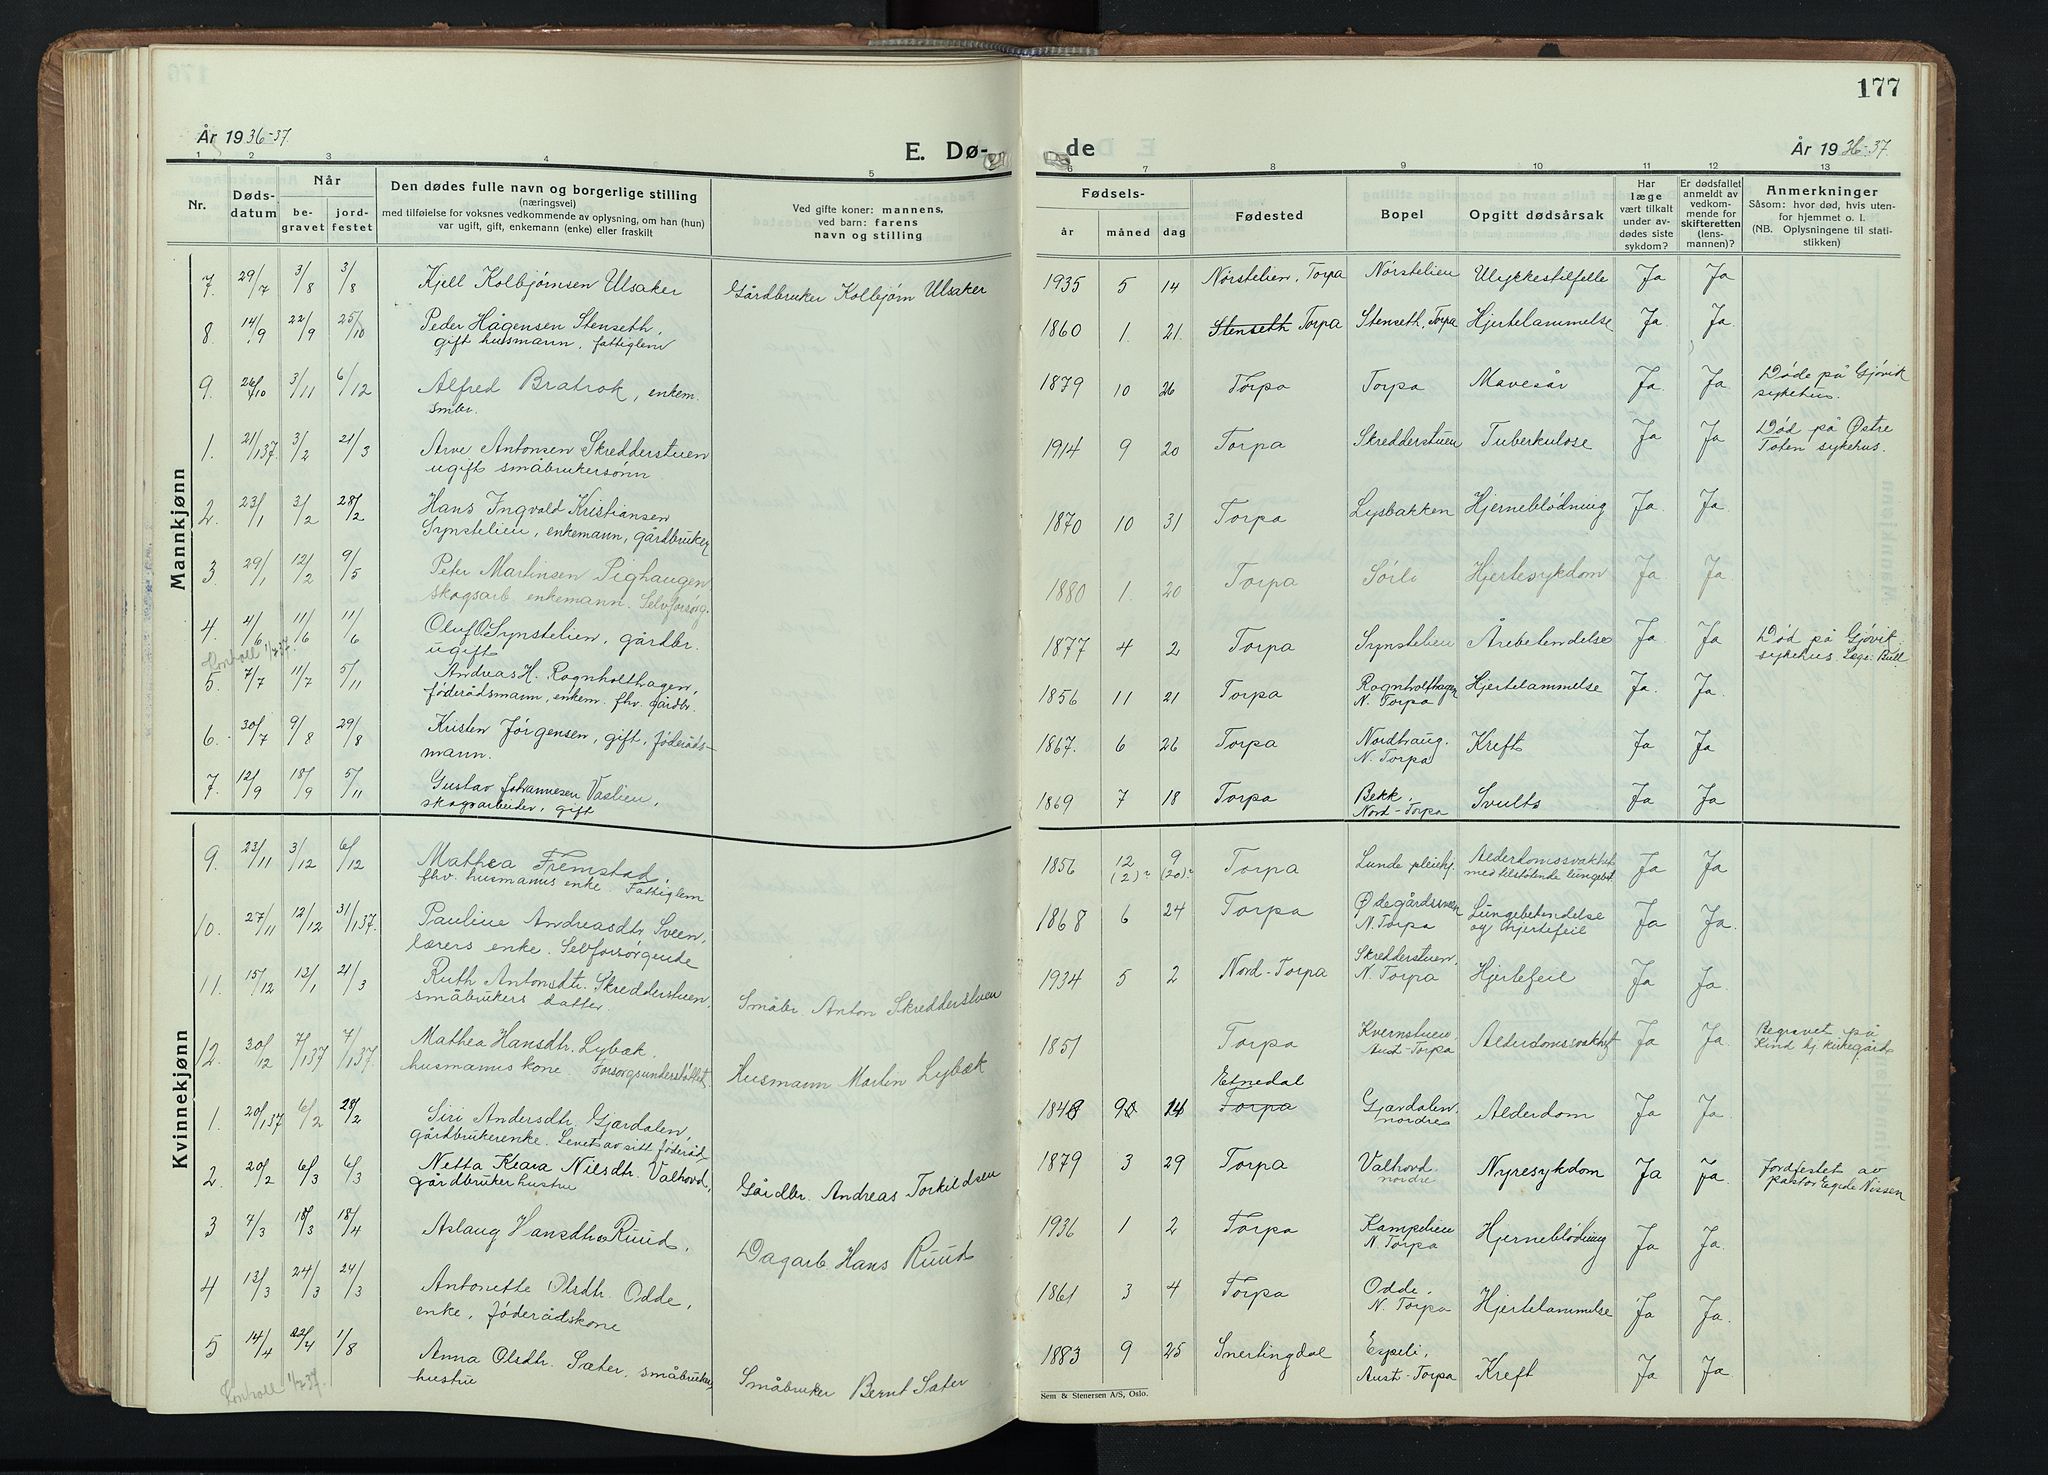 177
År 1936-37.
E. Dø-
de
År 1936-37.
1 2 3 4 5 6 7 8 9 10 11 12 13
Nr.
Døds-
datum
Når
be-
gravet
jord-
festet
Den dødes fulle navn og borgerlige stilling
(næringsvei)
med tilføielse for voksnes vedkommende av oplysning, om han (hun)
var ugift, gift, enkemann (enke) eller fraskilt
Ved gifte koner: mannens,
ved barn: farens
navn og stilling
Fødsels-
år måned dag
Fødested
Bopel
Opgitt dødsårsak
Har
læge
vært tilkalt
under av-
dødes siste
sykdom?
Er dødsfallet
anmeldt av
vedkom-
mende for
skifteretten
(lens-
mannen)?
Anmerkninger
Såsom: hvor død, hvis uten-
for hjemmet o. l.
(NB. Oplysningene til stati-
stikken)
Mannkjønn
7. 29/7 3/8 3/8 Kjell Kolbjørnsen Ulsaker Gårdbruker Kolbjørn Ulsaker 1935 5 14 Nørstelien, Torpa Nørstelien Ulykkestilfelle Ja Ja
8. 14/9 22/9 25/10 Peder Hågensen Stenseth, 1860 1. 21. Stenseth Torpa Stenseth, Torpa Hjertelammelse Ja Ja.
gift husmann, fattiglem
9. 26/10 3/11 6/12 Alfred Bratrok, enkem. 1879 10 26 Torpa Torpa Mavesår Ja Ja Døde på Gjøvik
smbr. sykehus.
1. 21/1 37. 3/2 21/3 Arve Antonsen Skredderstuen 1914 9 20 Torpa Skredderstuen Tuberkulose Ja Ja Død på Østre
ugift småbrukersønn. Toten sykehus.
2. 23/1 3/2 28/2 Hans Ingvald Kristiansen 1870 10 31 Torpa Lysbakken Hjerneblødning Ja Ja
Synstelien, enkemann, gårdbruker
3. 29/1 12/2 9/5 Peter Martinsen Pighaugen 1880 1. 20 Torpa Sørli Hjertesykdom Ja Ja
skogsarb. enkemann. Selvforsørg.
4. 4/6 11/6 11/6 Oluf O. Synstelien, gårdbr. 1877 4 2 Torpa Synstelien Årebetendelse Ja Ja. Død på Gjøvik
ugift sykehus. Læge: Bull
Kontroll 1/7 37.
5. 7/7 11/7 5/11 Andreas H. Rognholthagen, 1856 11 21 Torpa Rognholthagen Hjertelammelse Ja. Ja.
føderådsmann, enkem. fhv. gårdbr. N. Torpa
6. 30/7 9/8 29/8 Kristen Jørgensen, gift, føderåds- 1867. 6 26 Torpa Nordhaug. Kreft Ja Ja
mann. N. Torpa
7. 12/9 18/9 5/11 Gustav Johannesen Vaslien, 1869 7 18 Torpa Bekk, Svults Ja Ja
skogsarbeider, gift Nord-Torpa
Kvinnekjønn
9. 23/11 3/12 6/12 Mathea Fremstad, 1856 12 9 Torpa Lunde pleiehj. Alderdomssvakhet Ja Ja
fhv. husmanns enke. Fattiglem (2)? (20)? med tilstøtende lungebet.
10. 27/11 12/12 31/1 37. Pauline Andreasdtr. Sveen, 1868 6 24 Torpa Ødegårdssveen Lungebetendelse Ja Ja.
lærers enke. Selvforsørgende N. Torpa og hjertefeil
11. 15/12 13/1 21/3 Ruth Antonsdtr. Skredderstuen, Småbr. Anton Skredderstuen 1934 5 2 Nord-Torpa Skredderstuen, Hjertefeil Ja Ja.
småbrukers datter. N. Torpa
12. 30/12 7/1 37 7/1 37. Mathea Hansdtr. Lybæk, Husmann Martin Lybæk 1851 Torpa Kvernstuen, Alderdomssvakhet Ja Ja. Begravet på
husmanns kone. Forsorgsunderstøttet Aust-Torpa Kind kj. kirkegård
1. 20/1 37 6/2 28/2 Siri Andersdtr. Gjærdalen, 1848 9 14 Etnedal Torpa Gjærdalen, Alderdom Ja Ja.
gårdbrukerenke. Levet av sitt føderåd nordre
2. 20/2 6/3 6/3 Netta Klara Nilsdtr. Valhovd, Gårdbr. Andreas Torkildsen 1879 3 29 Torpa Valhovd. Nyresykdom Ja Ja. Jordfestet av
gårdbruker hustru nordre pastor Egede Nissen
3 7/3 18/3 18/4 Aslaug Hansdtr. Ruud. Dagarb. Hans Ruud 1936 1 2 Torpa Kampelien Hjerneblødning Ja Ja.
N. Torpa
4 13/3 24/3 24/3 Antonette Olsdtr. Odde, 1861 3 4 Torpa Odde. Hjertelammelse Ja Ja.
enke, føderådskone N. Torpa
5 14/4 22/4 1/8 Anna Olsdtr. Sæter, småbruker Småbruker Bernt Sæter 1883 9 25 Snertingdal Espeli, Kreft Ja Ja
hustru Aust-Torpa
Kontroll 1/7 37.
Sem & Stenersen A/S, Oslo.